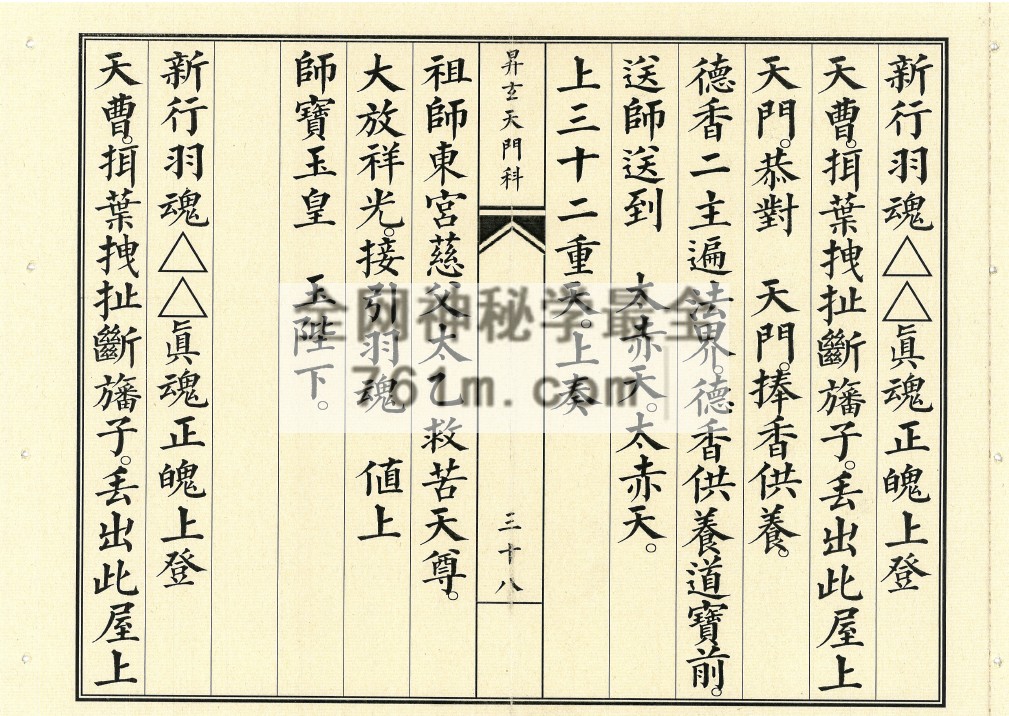 新行羽魂△△眞魂正魄上登
天曹。挕葉拽扯斷旛子。丢出此屋上
天門。恭對　天門。捧香供養。
德香二主遍法界。德香供養道寶前。
送師送到　太赤天。太赤天。
上三十二重天。上奏
昇玄天門科　三十八
祖師東宮慈父太乙救苦天尊。
大放祥光。接引羽魂　値上
師寶玉皇　玉陛下。
新行羽魂△△眞魂正魄上登
天曹。挕葉拽扯斷旛子。丢出此屋上
全网神秘学最全
761m.com